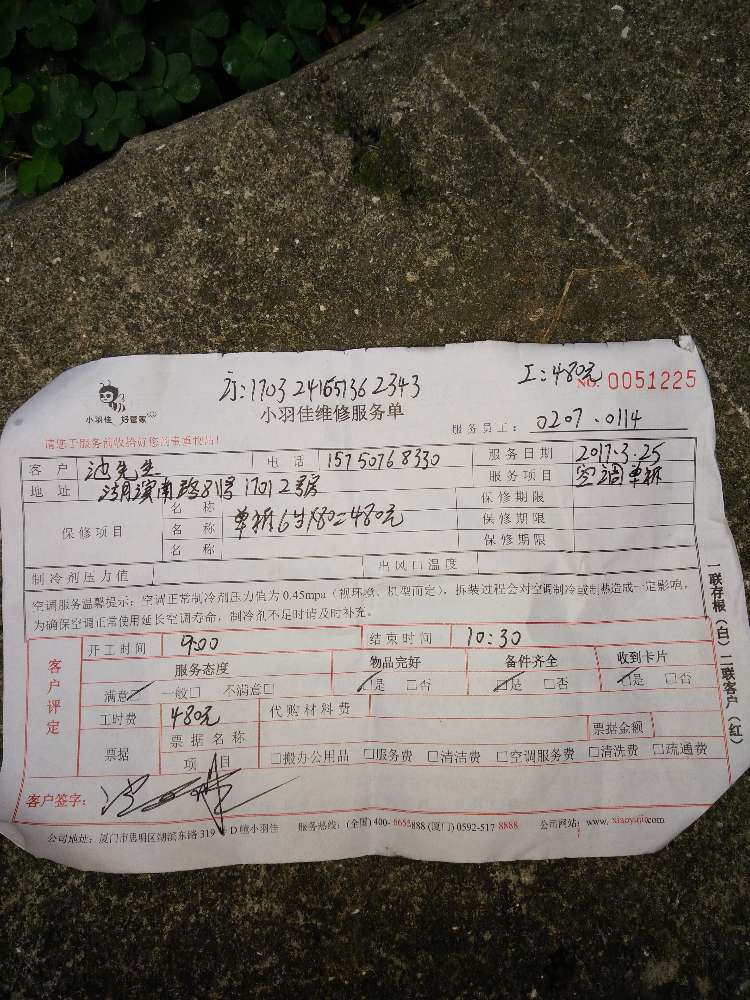 方:1703 24165736 2343
工:480元
NO. 0051225
小羽佳 好管家
小羽佳维修服务单
服务员工: 0207.0114
请您于服务前收拾好您的贵重物品!
客户 池先生 电话 15750768330 服务日期 2017.3.25
地址 湖滨南路81号 1701 2号房 服务项目 空调单拆
保修项目 名称 单拆6台X80=480元 保修期限
名称 保修期限
名称 保修期限
制冷剂压力值 出风口温度
空调服务温馨提示:空调正常制冷剂压力值为 0.45mpa(视环境、机型而定),拆装过程会对空调制冷或制热造成一定影响,
为确保空调正常使用延长空调寿命,制冷剂不足时请及时补充。
客户评定
开工时间 9:00 结束时间 10:30
服务态度 物品完好 备件齐全 收到卡片
满意☑ 一般□ 不满意□ ☑是 □否 ☑是 □否 ☑是 □否
工时费 480元 代购材料费
票据 票据名称 票据金额
项目 □搬办公用品 □服务费 □清洁费 □空调服务费 □清洗费 □疏通费
客户签字:
公司地址:厦门市思明区湖滨东路 319 号 D 幢小羽佳 服务热线:(全国)400-6655888 (厦门)0592-517 8888 公司网站:www.xiaoyujia.com
一联存根(白)二联客户(红)